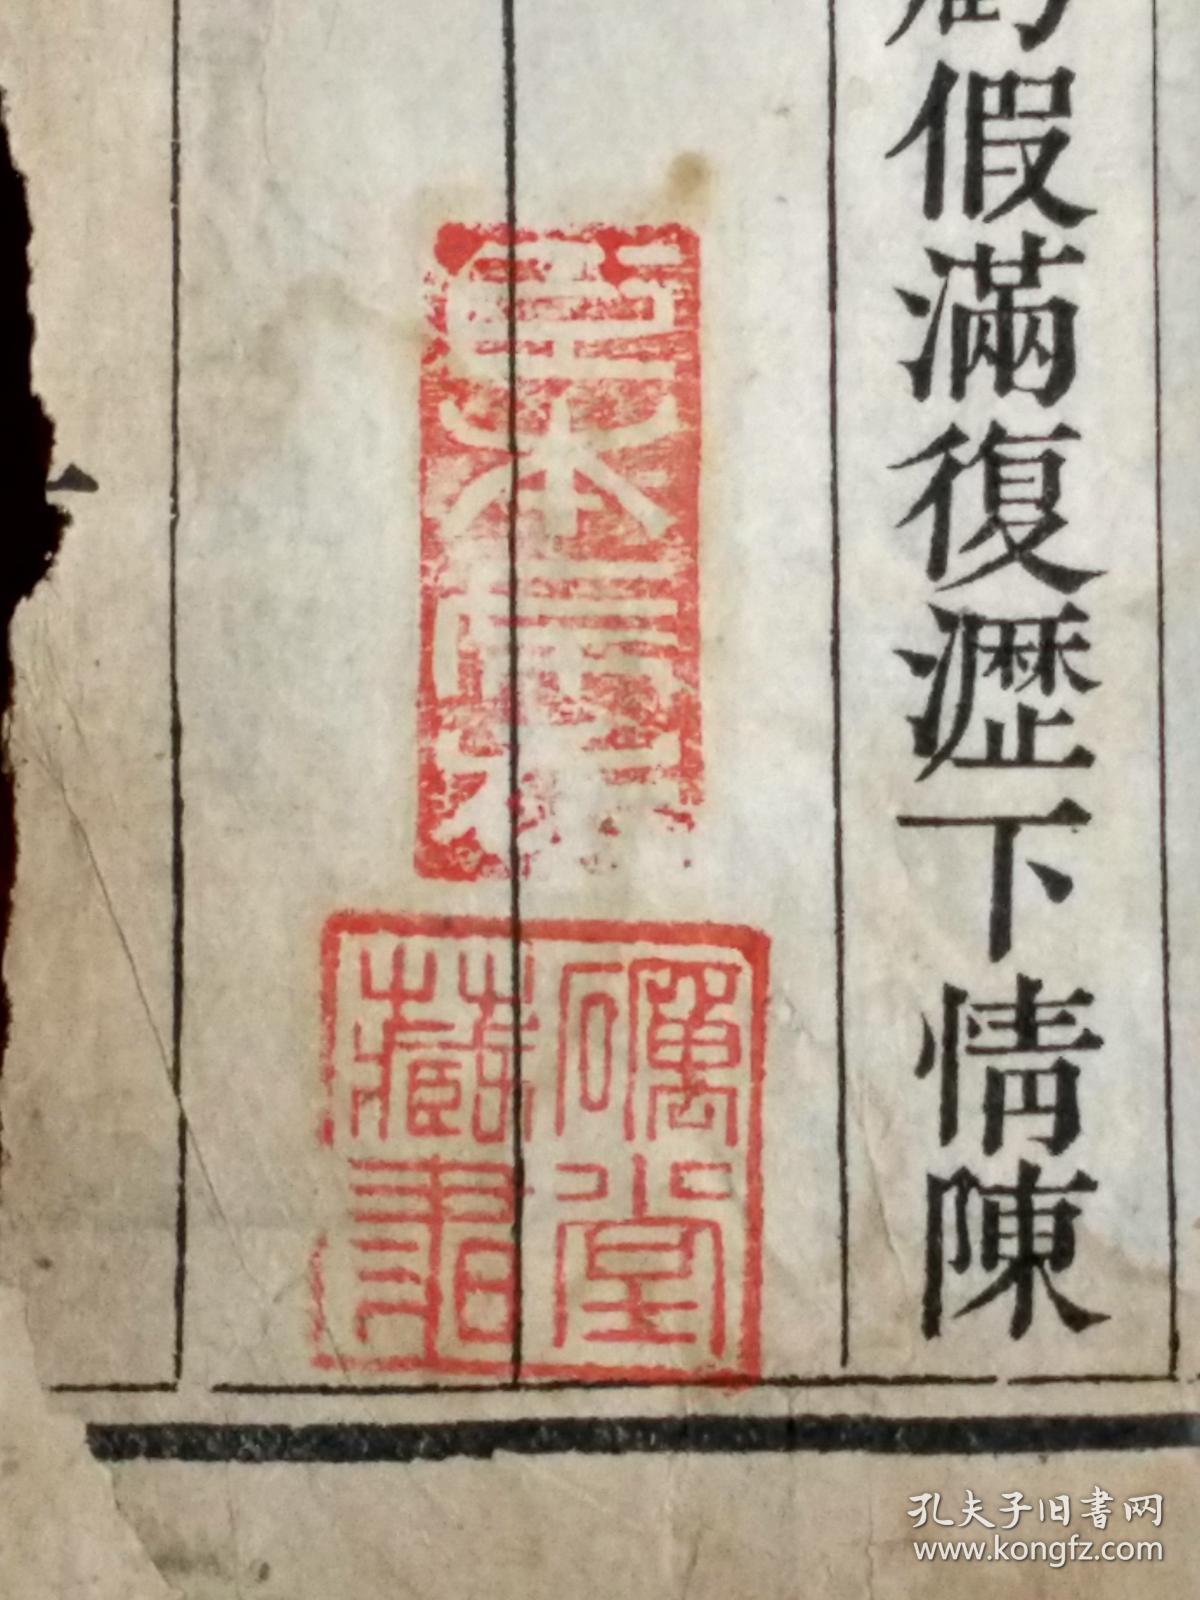 假滿復瀝下情陳
礪堂
藏書
孔夫子旧书网
www.kongfz.com